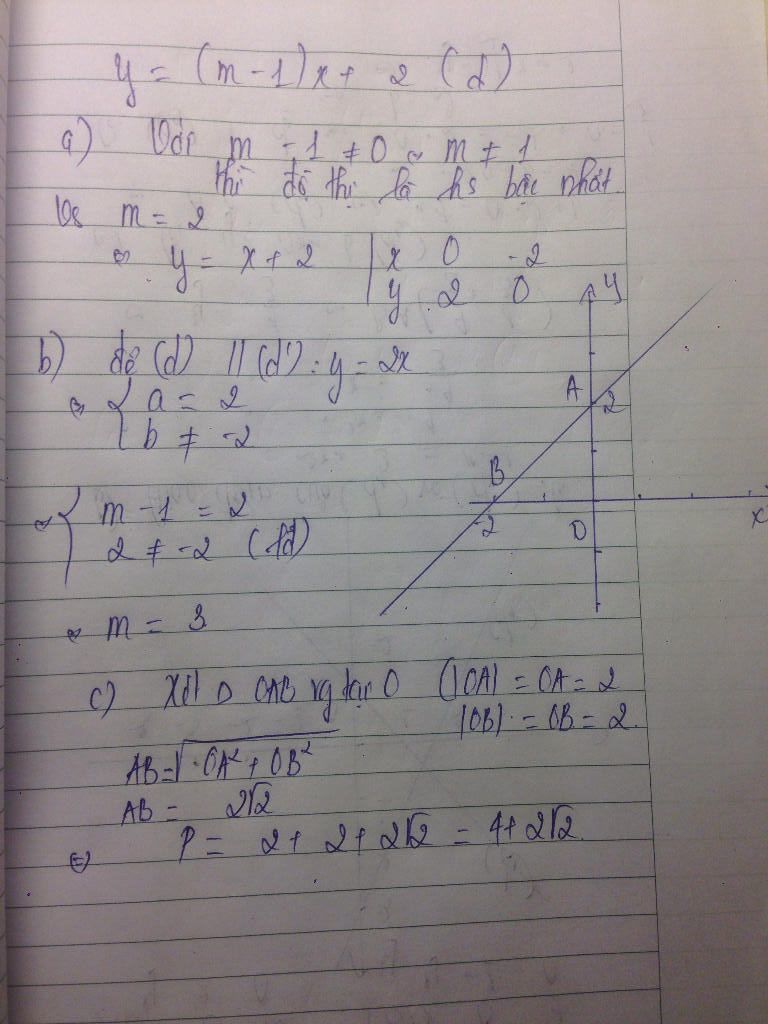 y = (m - 1)x + 2 (d)
a) Với m - 1 ≠ 0 ⇔ m ≠ 1
thì đồ thị là hs bậc nhất.
m = 2
⇔ y = x + 2 | x 0 -2
y 2 0
y
b) để (d) // (d'): y = 2x
⇔ { a = 2
b ≠ -2
A 2
B
-2 O x
⇔ { m - 1 = 2
2 ≠ -2 (lđ)
⇔ m = 3
c) Xét Δ OAB vg tại O (|OA| = OA = 2
|OB| = OB = 2.
AB = √OA² + OB²
AB = 2√2
⇒ P = 2 + 2 + 2√2 = 4 + 2√2.